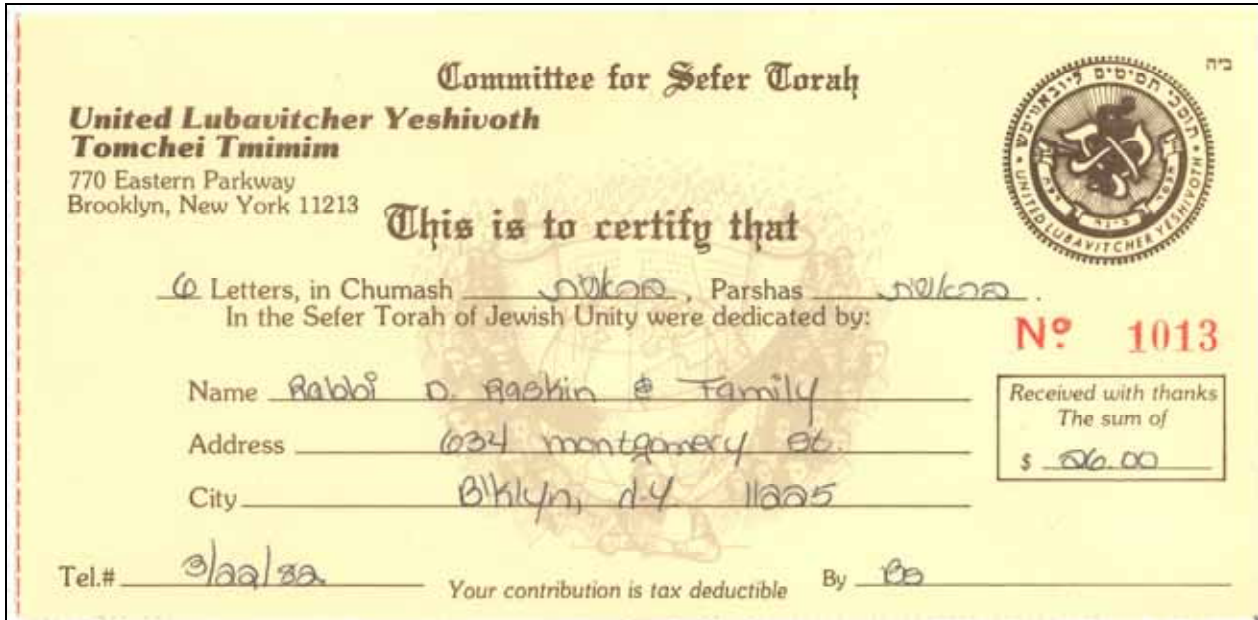 ב״ה
Committee for Sefer Torah
United Lubavitcher Yeshivoth
Tomchei Tmimim
770 Eastern Parkway
Brooklyn, New York 11213
תומכי תמימים ליובאוויטש
UNITED LUBAVITCHER YESHIVOTH
This is to certify that
6 Letters, in Chumash בראשית, Parshas בראשית.
In the Sefer Torah of Jewish Unity were dedicated by:
Nº 1013
Name Rabbi D. Raskin & Family
Address 634 montgomery st.
City B'klyn, N-Y 11225
Received with thanks
The sum of
$ 26.00
Tel.# 3/22/82
Your contribution is tax deductible
By